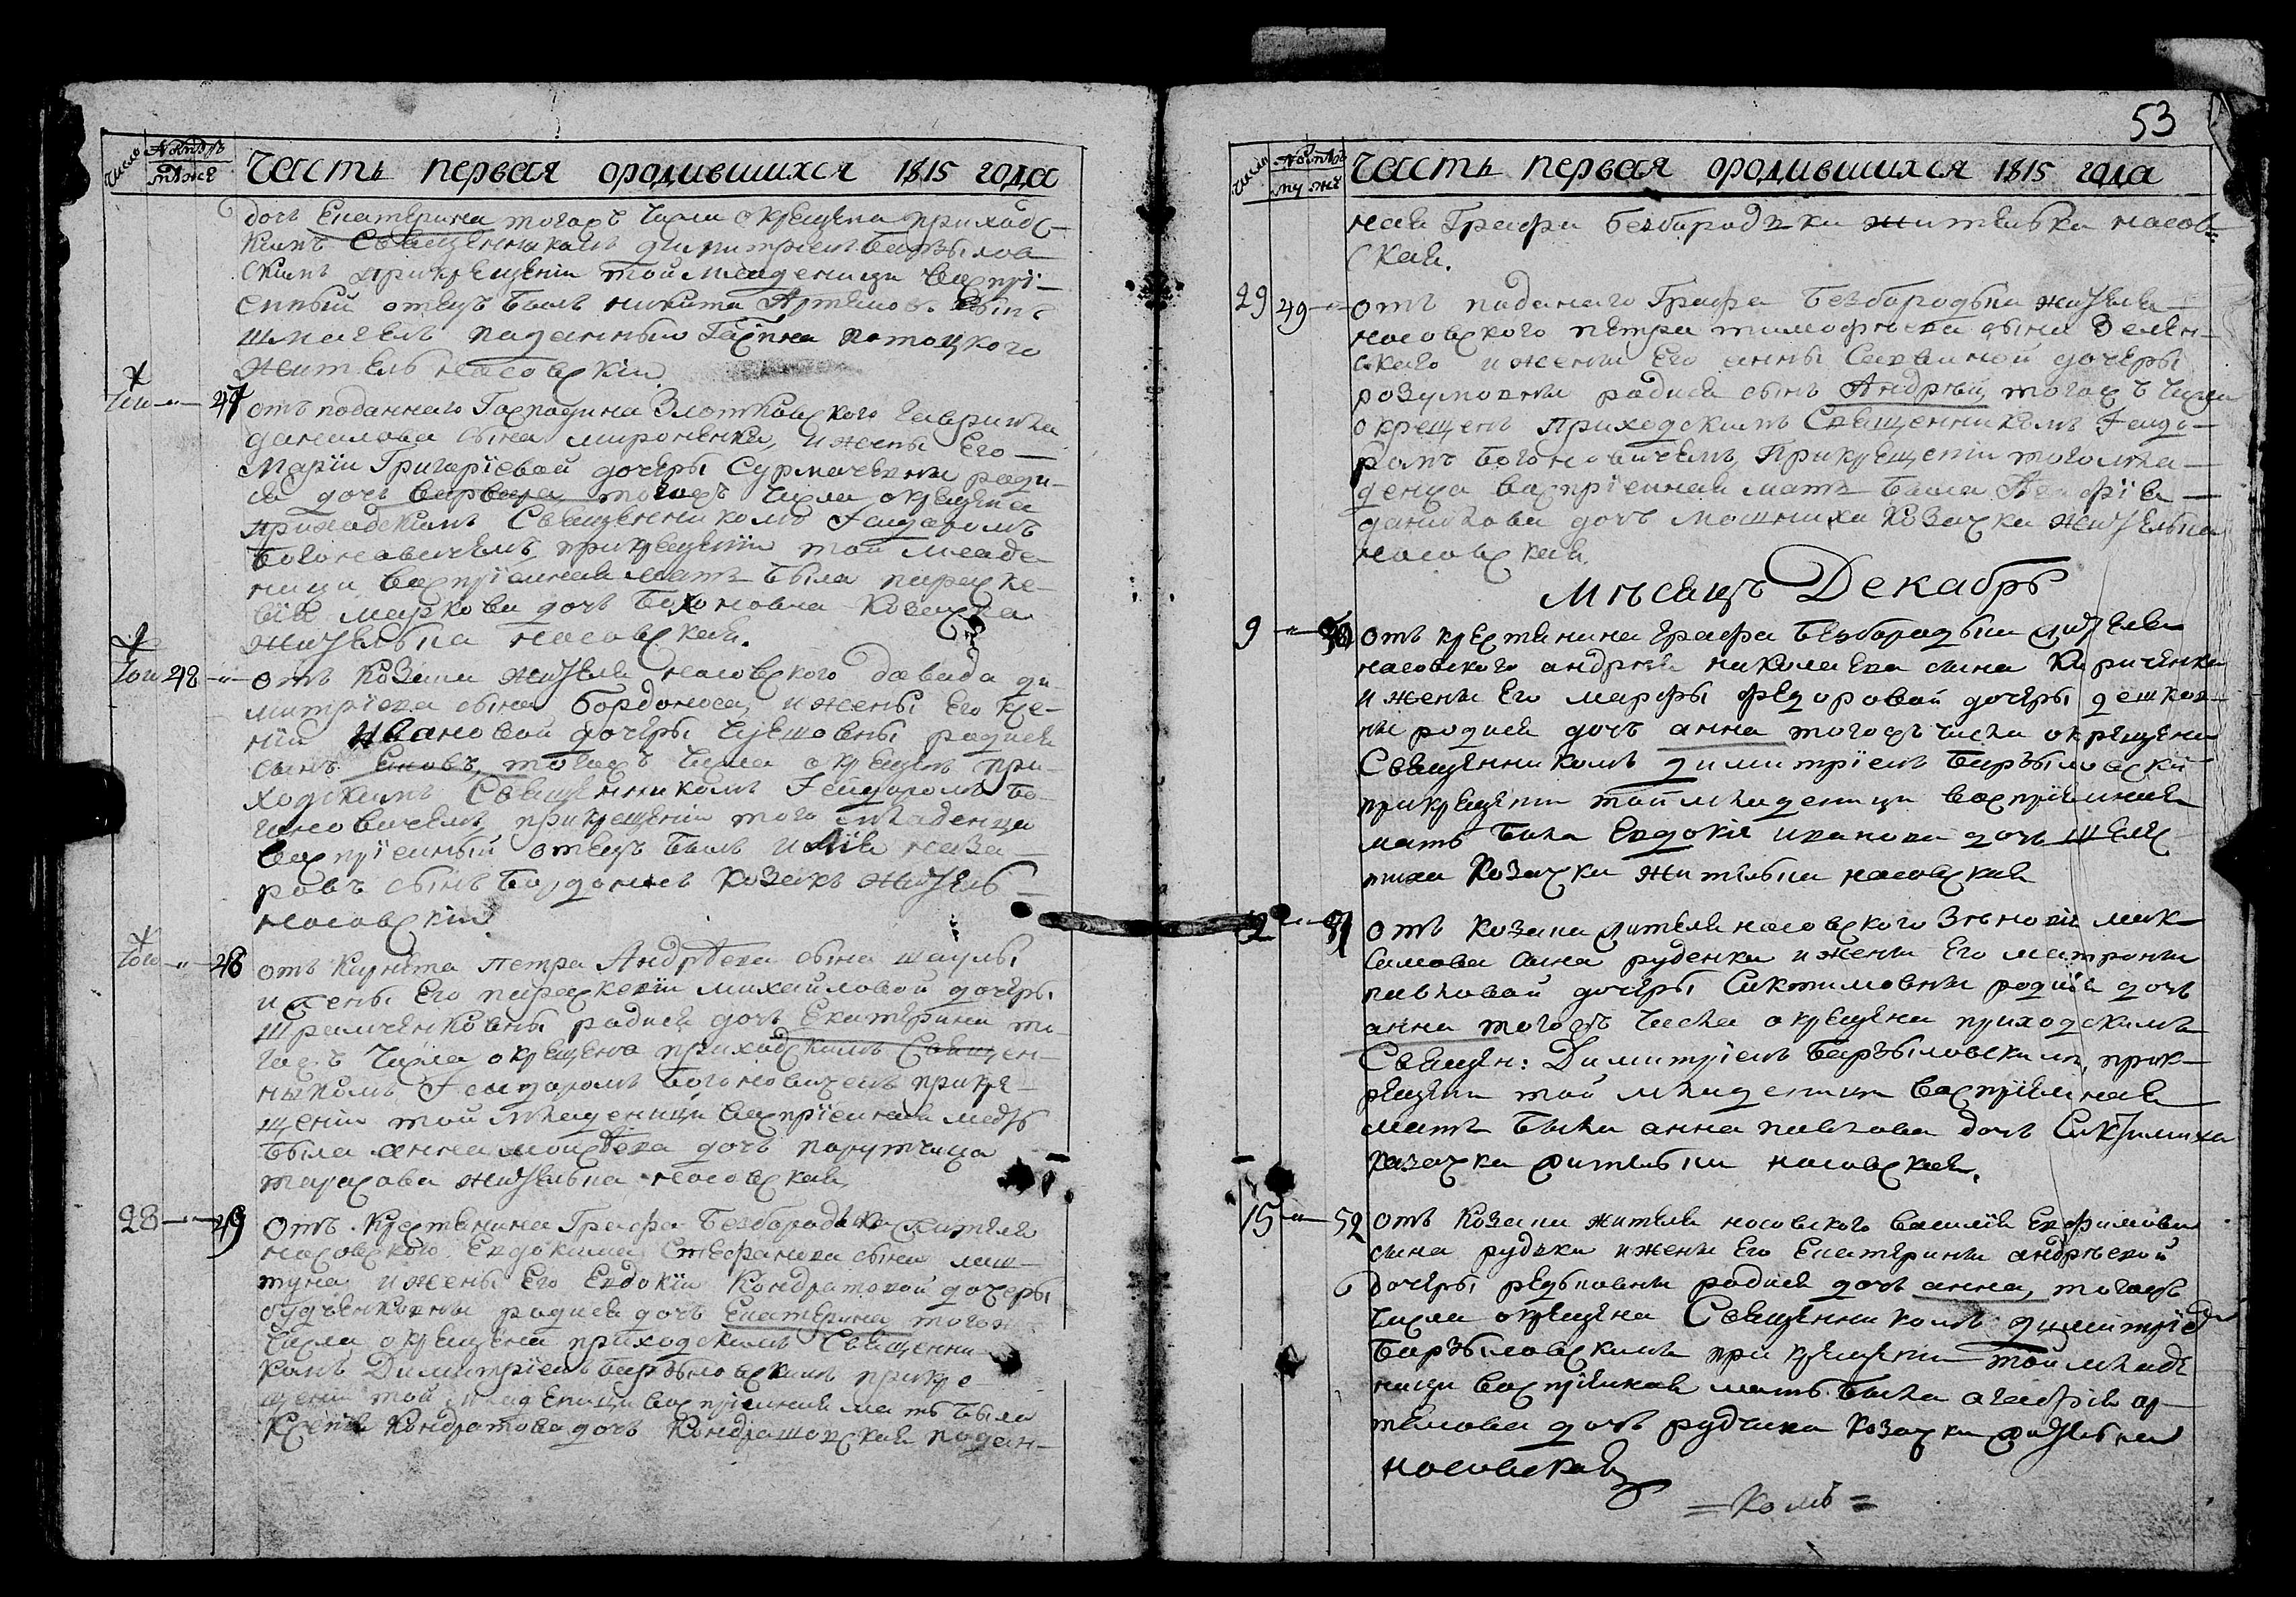 Число
Ноябрь
мужес
Часть первая ородившихся 1815 года
дочь Екатерина тогожъ числа окрещена приходс-
кимъ Священникомъ Димитріемъ Барзылов
скимъ прикрещеніи той младеницы воспрі-
емный отецъ былъ никита Артемов. сынъ
подданный потоцкого
житель носовскій
того 47 отъ подданнаго Господина Злотковского гавриила
данилова сына мироненка, и жены Его
Маріи Григоріевой дочеры Сурмачевны роди-
ся дочь варвара тогожъ числа окрещена
Приходскимъ Священникомъ Феодоромъ
Богоновичемъ, прикрещеніи той младе
ници воспріемная мать была параске-
вія маркова дочь козачка
жителька носовская.
того 48 отъ Козака жителя носовского давида ди-
митріева сына бордоноса, и жены Его ксе-
ніи Ивановой дочеры родися
сынъ Іяковъ, тогожъ числа окрещенъ при-
ходскимъ Священникомъ Феодоромъ Бо-
гоновичемъ, прикрещеніи того младенца
воспріемный отецъ былъ илія наза-
ровъ сынъ козакъ житель
носовскій
того 48 отъ Петра Андрѣева сына шаулы
и жены Его параскевіи михайловой дочеры
Шрамченковны родися дочь Екатерина то-
гожъ числа окрещена приходскимъ Священ-
ныкомъ Феодоромъ Богоновичемъ прикре-
щеніи той младеници воспріемная мать
была анна моисѣева дочь порутчица
тарасова жителька носовская
28 49 отъ Крестянина Графа Безбородька жителя
носовского Евдокима Стефанова сына
и жены Его Евдокіи Кондратовой дочеры
родися дочь Екатерина тогож
числа окрещена приходскимъ Священни
комъ Димитріемъ Барзыловскимъ прикре
щеніи той младеници воспріемная мать была
Ксенія Кондратова дочь Кондрашовская поддан-
53
Число
Ноябрь
мужес
Часть первая ородившихся 1815 года
ная Графа безбородька жителька носов-
ская.
29 49 отъ поданаго Графа Безбородька жителя
носовского петра тимофѣева сына Зелен-
ского и жены Его анны Саввиной дочеры
розумовны родися сынъ Андрѣй, тогожъ числа
окрещенъ приходскимъ Священникомъ Феодо-
ромъ Богоновичемъ, Прикрещеніи того мла-
денца воспріемная мать была Агафія
данилова дочь мошниха Козачка жителька
носовская.
Мѣсяцъ Декабрь
9 50 отъ крестянина графа безбородька жителя
носовского андрѣя николаева сына Кириченка
и жены Его марфы федоровой дочеры дешков-
ны родися дочь анна тогожъ числа окрещена
Священникомъ димитріемъ Барзыловски
прикрещеніи той младеници воспріемная
мать была Евдокія иванова дочь
Козачка жителька носовская
12 51 отъ козака жителя носовского Зѣновія мак-
симова сына руденка и жены Его матроны
павловой дочеры Сиктимовны родися дочь
анна тогожъ числа окрещена приходскимъ
Священ: Димитріемъ Барзыловскимъ, прик-
рещеніи той младеници воспріемная
мать была анна павлова дочь Сиктимиха
козачка жителька носовская.
15 52 отъ Козака жителя носовского василія Евфимова
сына рудька и жены Его Екатерины андрѣевой
дочеры редьковны родися дочь анна, тогожъ
числа окрещена Священникомъ димитріе
Барзыловскимъ при крещеніи той младе
ници воспріемная мать была агафія ар-
темова дочь рудчиха козачка жителька
носовская
= Комъ =